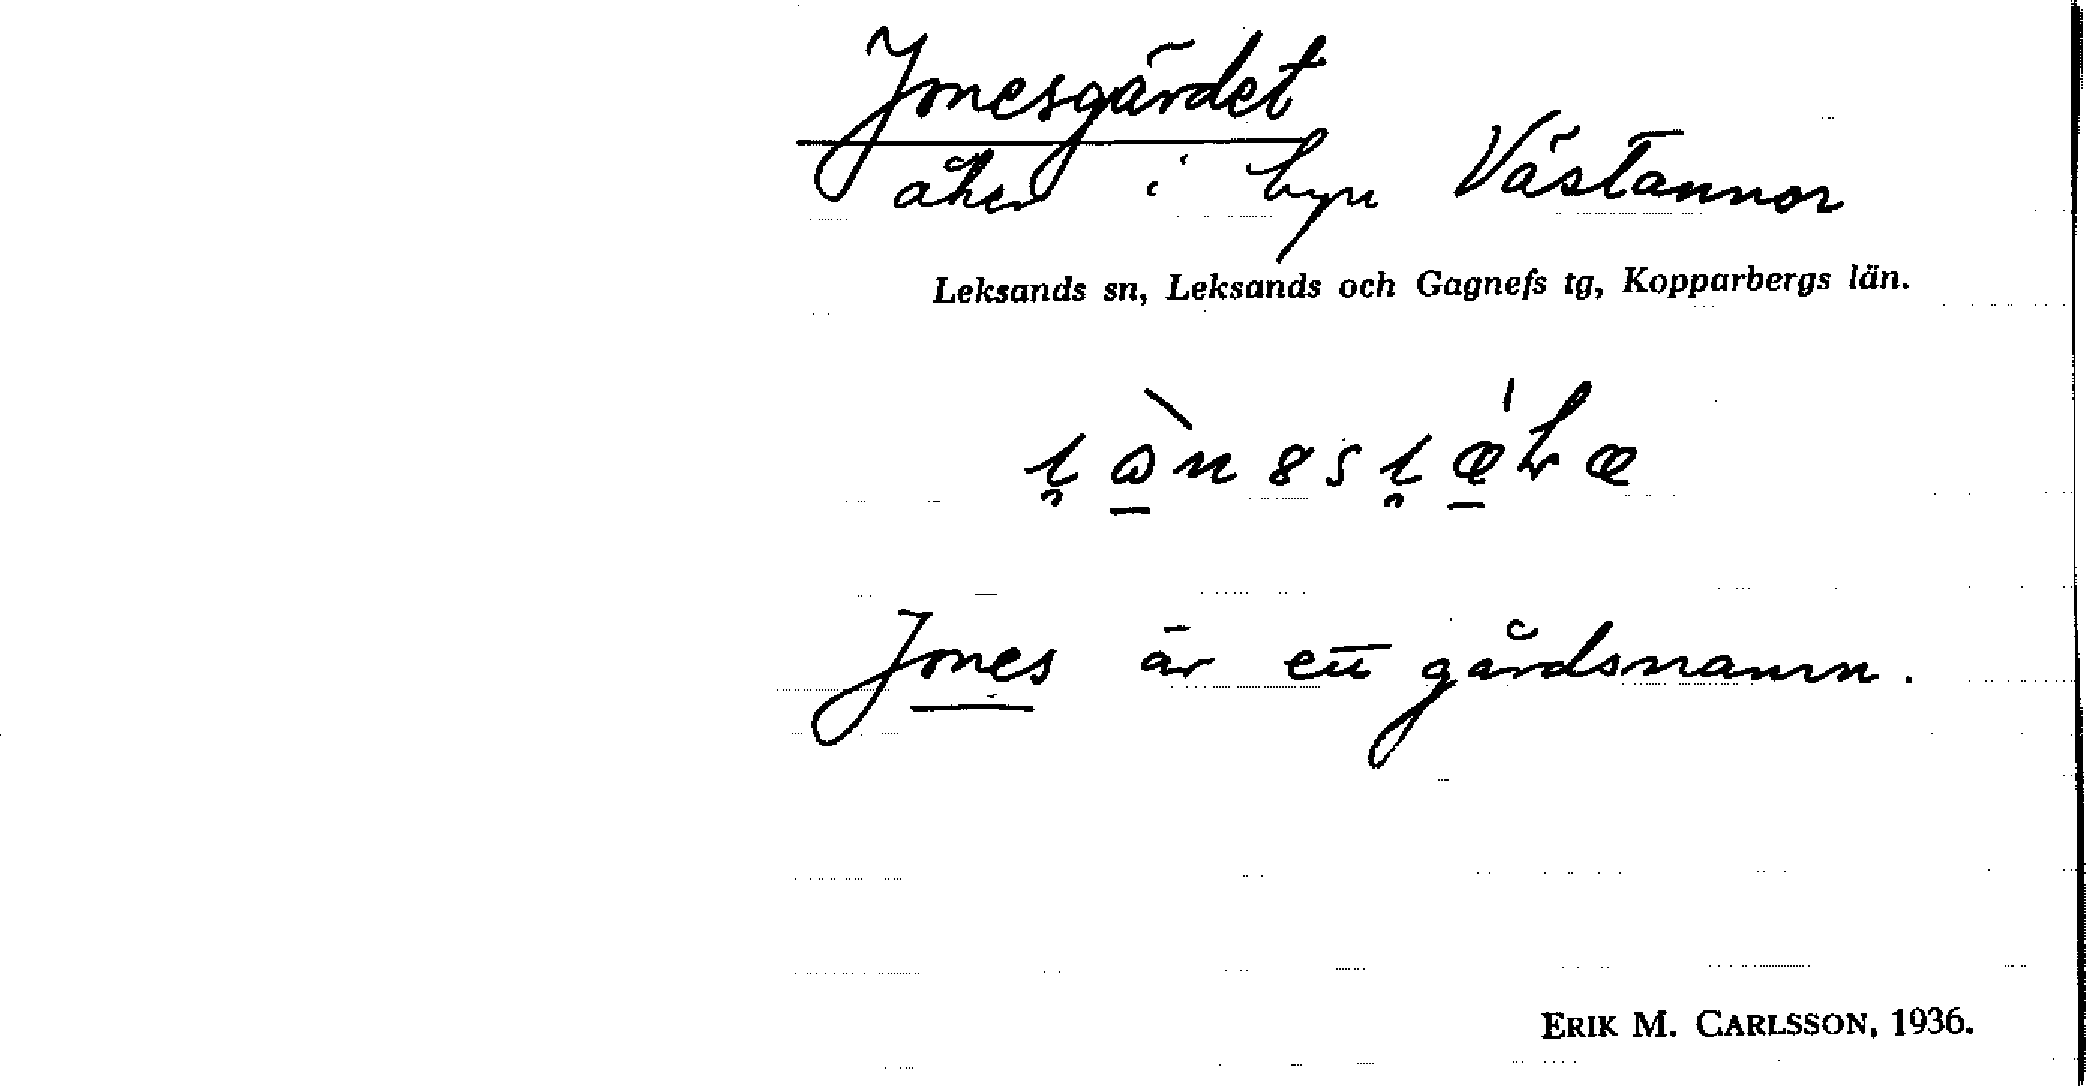 Jonesgärdet
åker i byn Västannor
Leksands sn, Leksands och Gagnefs tg, Kopparbergs län.
Jones är ett gårdsnamn.
ERIK M. CARLSSON, 1936.